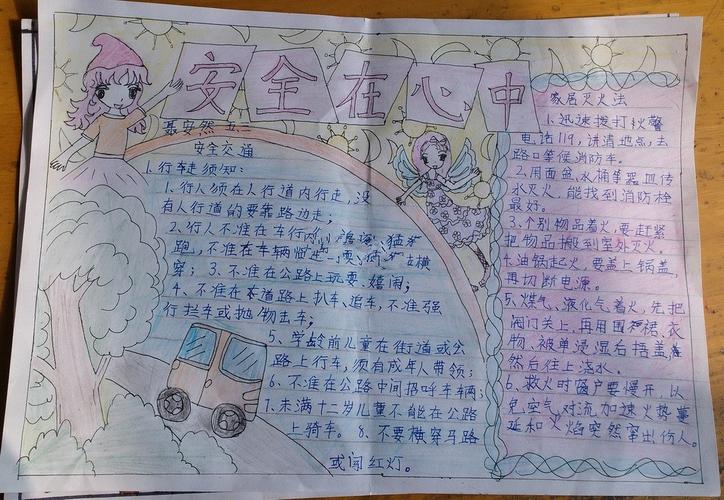 安全在心中
聂安然 五二
安全交通
1.行走须知:
1.行人须在人行道内行走,没
有人行道的要靠路边走;
2.行人不准在车行内 追逐、猛
跑,不准在车辆临近 横
穿; 3、不准在公路上玩耍、嬉闹;
4、不准在本道路上扒车、追车,不准强
行拦车或抛物击车;
5、学龄前儿童在街道或公
路上行车,须有成年人带领;
6、不准在公路中间招呼车辆;
7、未满十二岁儿童不能在公路
上骑车。 8、不要横穿马路
或闯红灯。
家居灭火法
1.迅速拨打火警
电话119,讲清地点,去
路口等候消防车。
2.用面盆、水桶等器皿传
水灭火,能找到消防栓
最好。
3.个别物品着火,要赶紧
把物品搬到室外灭火。
4.油锅起火,要盖上锅盖,
再切断电源。
5、煤气、液化气着火,先把
阀门关上,再用围裙、衣
物、被单浸湿后捂盖,
然后往上浇水。
6、救火时窗户要慢开,以
免空气对流加速火势蔓
延和火焰突然窜出伤人。